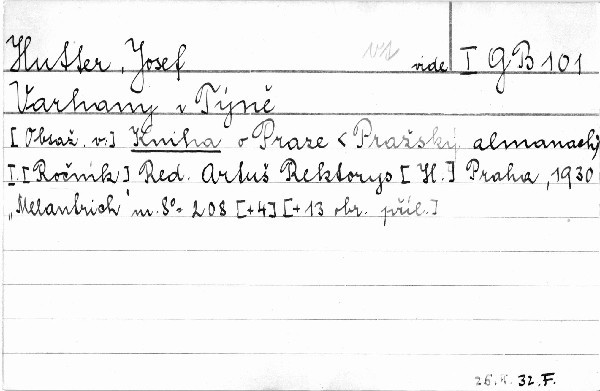 Hutter, Josef vide I GB 101
Varhany v Týně
[Obsaž. v:] Kniha o Praze < Pražský almanach>
I [Ročník] Red. Artuš Rektorys [Il.] Praha, 1930
„Melantrich" m. 8° 208 [+4] [+13 obr. příl.]
32. F.